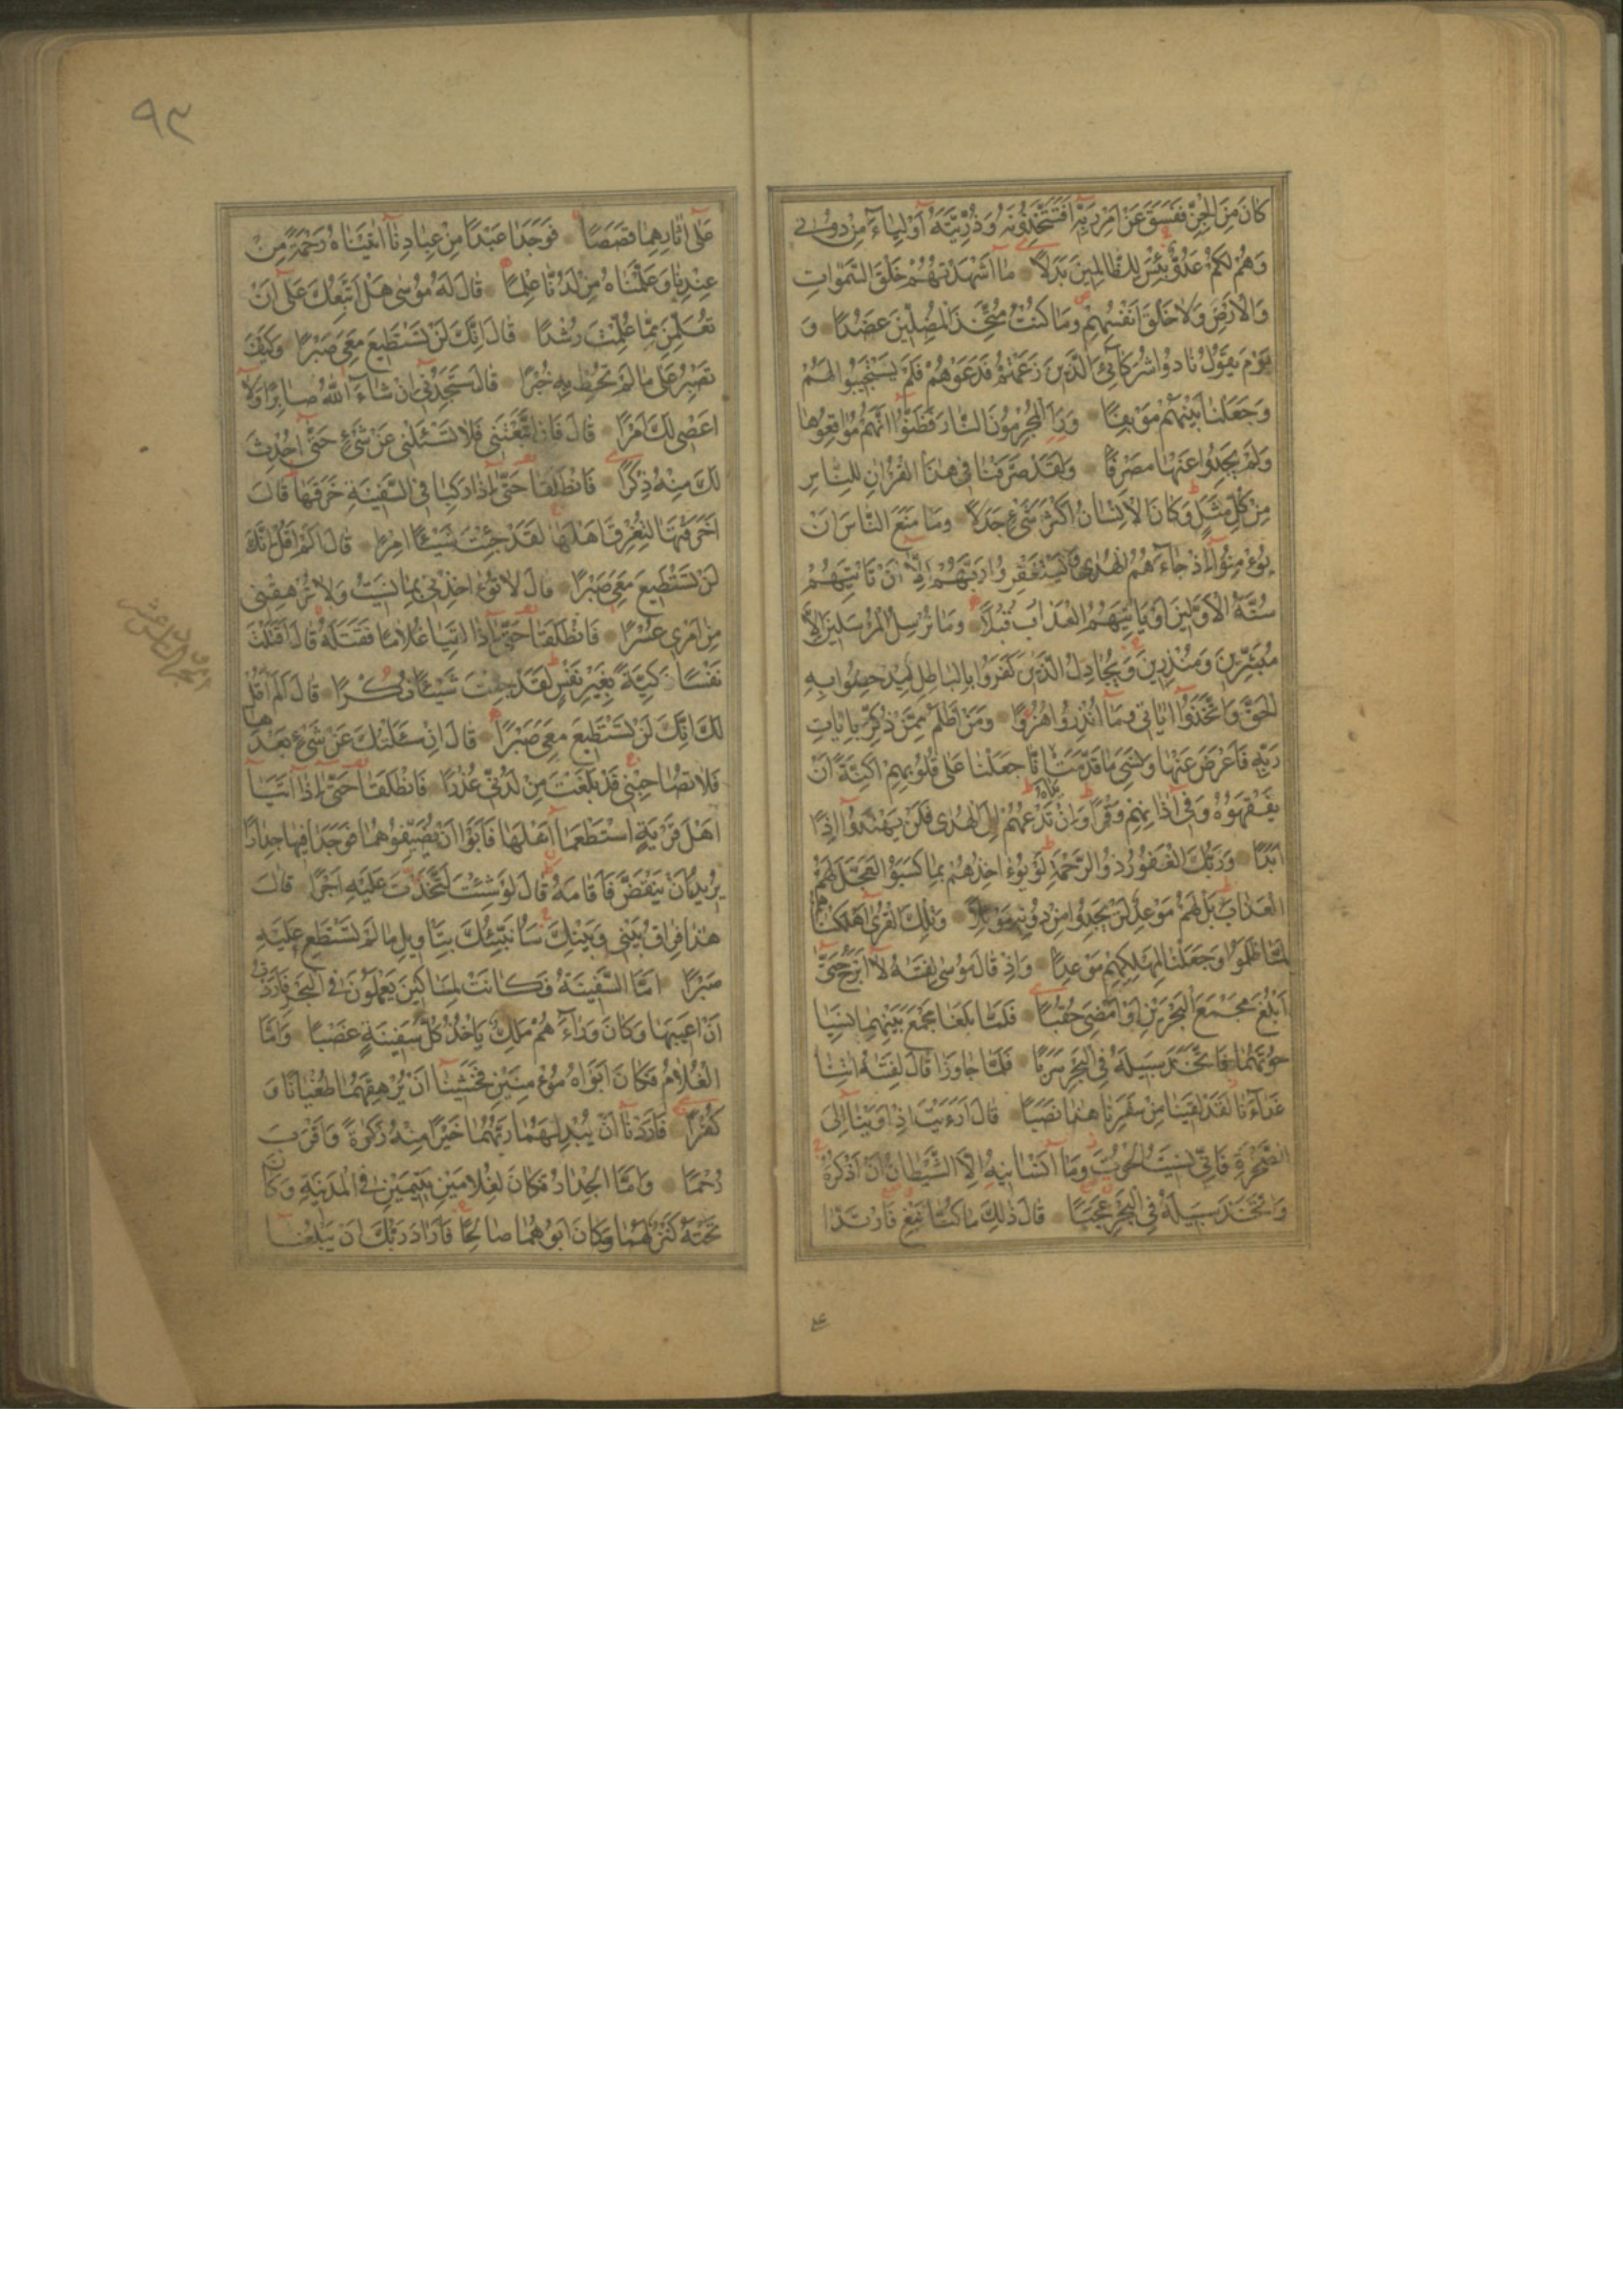 كانَ مِنَ الْجِنِّ فَفَسَقَ عَنْ اَمْرِ رَبِّهِ اَفَتَتَّخِذُونَهُ وَ ذُرِّيَّتَهُ اَوْلِياءَ مِنْ دُونى
وَهُمْ لَكُمْ عَدُوٌّ بِئْسَ لِلظّالِمينَ بَدَلًا ما اَشْهَدْتُهُمْ خَلْقَ السَّمٰواتِ
وَالْاَرْضِ وَلا خَلْقَ اَنْفُسِهِمْ وَما كُنْتُ مُتَّخِذَ الْمُضِلّينَ عَضُدًا وَ
يَوْمَ يَقُولُ نادُوا شُرَكائِىَ الَّذينَ زَعَمْتُمْ فَدَعَوْهُمْ فَلَمْ يَسْتَجيبُوا لَهُمْ
وَجَعَلْنا بَيْنَهُمْ مَوْبِقًا وَرَاَ الْمُجْرِمُونَ النّارَ فَظَنُّوا اَنَّهُمْ مُواقِعُوها
وَلَمْ يَجِدُوا عَنْها مَصْرِفًا وَلَقَدْ صَرَّفْنا فى هٰذَا الْقُرْاٰنِ لِلنّاسِ
مِنْ كُلِّ مَثَلٍ وَكانَ الْاِنْسانُ اَكْثَرَ شَىْءٍ جَدَلًا وَما مَنَعَ النّاسَ اَنْ
يُؤْمِنُوا اِذْ جاءَهُمُ الْهُدٰى وَيَسْتَغْفِرُوا رَبَّهُمْ اِلّا اَنْ تَاْتِيَهُمْ
سُنَّةُ الْاَوَّلينَ اَوْ يَاْتِيَهُمُ الْعَذابُ قُبُلًا وَما نُرْسِلُ الْمُرْسَلينَ اِلّا
مُبَشِّرينَ وَمُنْذِرينَ وَيُجادِلُ الَّذينَ كَفَرُوا بِالْباطِلِ لِيُدْحِضُوا بِهِ
الْحَقَّ وَاتَّخَذُوا اٰياتى وَما اُنْذِرُوا هُزُوًا وَمَنْ اَظْلَمُ مِمَّنْ ذُكِّرَ بِاٰياتِ
رَبِّهِ فَاَعْرَضَ عَنْها وَنَسِىَ ما قَدَّمَتْ يَداهُ اِنّا جَعَلْنا عَلى قُلُوبِهِمْ اَكِنَّةً اَنْ
يَفْقَهُوهُ وَفى اٰذانِهِمْ وَقْرًا وَاِنْ تَدْعُهُمْ اِلَى الْهُدٰى فَلَنْ يَهْتَدُوا اِذًا
اَبَدًا وَرَبُّكَ الْغَفُورُ ذُو الرَّحْمَةِ لَوْ يُؤاخِذُهُمْ بِما كَسَبُوا لَعَجَّلَ لَهُمُ
الْعَذابَ بَلْ لَهُمْ مَوْعِدٌ لَنْ يَجِدُوا مِنْ دُونِهِ مَوْئِلًا وَتِلْكَ الْقُرٰى اَهْلَكْناهُمْ
لَمّا ظَلَمُوا وَجَعَلْنا لِمَهْلِكِهِمْ مَوْعِدًا وَاِذْ قالَ مُوسٰى لِفَتٰهُ لا اَبْرَحُ حَتّٰى
اَبْلُغَ مَجْمَعَ الْبَحْرَيْنِ اَوْ اَمْضِىَ حُقُبًا فَلَمّا بَلَغا مَجْمَعَ بَيْنِهِما نَسِيا
حُوتَهُما فَاتَّخَذَ سَبيلَهُ فِى الْبَحْرِ سَرَبًا فَلَمّا جاوَزا قالَ لِفَتٰهُ اٰتِنا
غَداءَنا لَقَدْ لَقينا مِنْ سَفَرِنا هٰذا نَصَبًا قالَ اَرَءَيْتَ اِذْ اَوَيْنا اِلَى
الصَّخْرَةِ فَاِنّى نَسيتُ الْحُوتَ وَما اَنْسانيهُ اِلَّا الشَّيْطانُ اَنْ اَذْكُرَهُ
وَاتَّخَذَ سَبيلَهُ فِى الْبَحْرِ عَجَبًا قالَ ذٰلِكَ ما كُنّا نَبْغِ فَارْتَدّا
٩٣
عَلٰى اٰثارِهِما قَصَصًا فَوَجَدا عَبْدًا مِنْ عِبادِنا اٰتَيْناهُ رَحْمَةً مِنْ
عِنْدِنا وَعَلَّمْناهُ مِنْ لَدُنّا عِلْمًا قالَ لَهُ مُوسٰى هَلْ اَتَّبِعُكَ عَلٰى اَنْ
تُعَلِّمَنِ مِمّا عُلِّمْتَ رُشْدًا قالَ اِنَّكَ لَنْ تَسْتَطيعَ مَعِىَ صَبْرًا وَكَيْفَ
تَصْبِرُ عَلٰى ما لَمْ تُحِطْ بِهِ خُبْرًا قالَ سَتَجِدُنى اِنْ شاءَ اللّٰهُ صابِرًا وَلا
اَعْصى لَكَ اَمْرًا قالَ فَاِنِ اتَّبَعْتَنى فَلا تَسْئَلْنى عَنْ شَىْءٍ حَتّٰى اُحْدِثَ
لَكَ مِنْهُ ذِكْرًا فَانْطَلَقا حَتّٰى اِذا رَكِبا فِى السَّفينَةِ خَرَقَها قالَ
اَخَرَقْتَها لِتُغْرِقَ اَهْلَها لَقَدْ جِئْتَ شَيْئًا اِمْرًا قالَ اَلَمْ اَقُلْ اِنَّكَ
لَنْ تَسْتَطيعَ مَعِىَ صَبْرًا قالَ لا تُؤاخِذْنى بِما نَسيتُ وَلا تُرْهِقْنى
مِنْ اَمْرى عُسْرًا فَانْطَلَقا حَتّٰى اِذا لَقِيا غُلامًا فَقَتَلَهُ قالَ اَقَتَلْتَ
نَفْسًا زَكِيَّةً بِغَيْرِ نَفْسٍ لَقَدْ جِئْتَ شَيْئًا نُكْرًا قالَ اَلَمْ اَقُلْ
لَكَ اِنَّكَ لَنْ تَسْتَطيعَ مَعِىَ صَبْرًا قالَ اِنْ سَئَلْتُكَ عَنْ شَىْءٍ بَعْدَها
فَلا تُصاحِبْنى قَدْ بَلَغْتَ مِنْ لَدُنّى عُذْرًا فَانْطَلَقا حَتّٰى اِذا اَتَيا
اَهْلَ قَرْيَةٍ اسْتَطْعَما اَهْلَها فَاَبَوْا اَنْ يُضَيِّفُوهُما فَوَجَدا فيها جِدارًا
يُريدُ اَنْ يَنْقَضَّ فَاَقامَهُ قالَ لَوْ شِئْتَ لَتَّخَذْتَ عَلَيْهِ اَجْرًا قالَ
هٰذا فِراقُ بَيْنى وَبَيْنِكَ سَاُنَبِّئُكَ بِتَاْويلِ ما لَمْ تَسْتَطِعْ عَلَيْهِ
صَبْرًا اَمَّا السَّفينَةُ فَكانَتْ لِمَساكينَ يَعْمَلُونَ فِى الْبَحْرِ فَاَرَدْتُ
اَنْ اَعيبَها وَكانَ وَراءَهُمْ مَلِكٌ يَاْخُذُ كُلَّ سَفينَةٍ غَصْبًا وَاَمَّا
الْغُلامُ فَكانَ اَبَواهُ مُؤْمِنَيْنِ فَخَشينا اَنْ يُرْهِقَهُما طُغْيانًا وَ
كُفْرًا فَاَرَدْنا اَنْ يُبْدِلَهُما رَبُّهُما خَيْرًا مِنْهُ زَكٰوةً وَاَقْرَبَ
رُحْمًا وَاَمَّا الْجِدارُ فَكانَ لِغُلامَيْنِ يَتيمَيْنِ فِى الْمَدينَةِ وَكانَ
تَحْتَهُ كَنْزٌ لَهُما وَكانَ اَبُوهُما صالِحًا فَاَرادَ رَبُّكَ اَنْ يَبْلُغا
الجزء السادس عشر